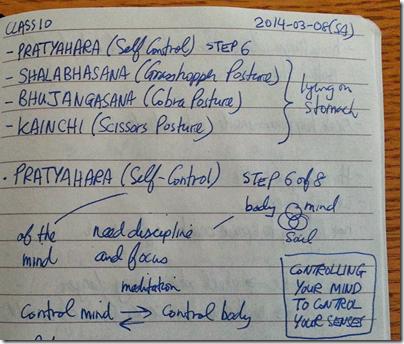 CLASS 10 2014-03-08(SA)
- PRATYAHARA (Self Control) STEP 6
- SHALABHASANA (Grasshopper Posture)
- BHUJANGASANA (Cobra Posture)
- KAINCHI (Scissors Posture)
lying on
Stomach
• PRATYAHARA (Self-Control) STEP 6 of 8
body mind
Soul
of the need discipline
mind and focus
meditation
Control mind ⇄ Control body
CONTROLLING
YOUR MIND
TO CONTROL
YOUR SENSES